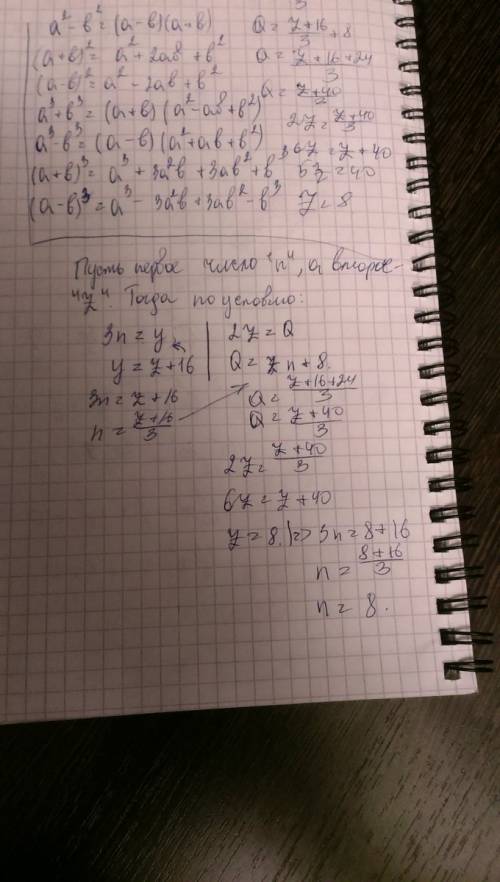 a² - b² = (a-b)(a+b)
(a+b)² = a² + 2ab + b²
(a-b)² = a² - 2ab + b²
a³+b³ = (a+b)(a²-ab+b²)
a³-b³ = (a-b)(a²+ab+b²)
(a+b)³ = a³ + 3a²b + 3ab² + b³
(a-b)³ = a³ - 3a²b + 3ab² - b³
Q = (z+16)/3 + 8
Q = (z+16+24)/3
Q = (z+40)/3
2z = (z+40)/3
6z = z+40
5z = 40
z = 8
Пусть первое число "n", а второе -
"z". Тогда по условию:
3n = y
y = z+16
3n = z+16
n = (z+16)/3
2z = Q
Q = n + 8.
Q = (z+16+24)/3
Q = (z+40)/3
2z = (z+40)/3
6z = z+40
z = 8. |=> 3n = 8+16
n = (8+16)/3
n = 8.